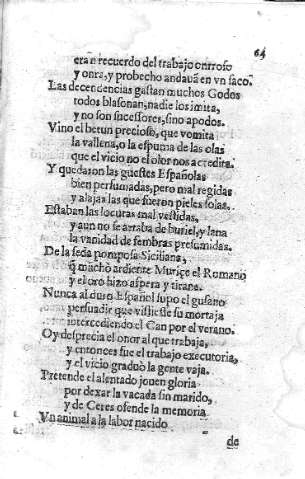 64
eran recuerdo del trabajo onrroso
y onra, y probecho andauã en vn saco.
Las decendencias gastan muchos Godos
todos blasonan, nadie los imita,
y no son sucessores, sino apodos.
Vino el betun precioso, que vomita
la vallena, o la espuma de las olas
que el vicio no el olor nos acredita.
Y quedaron las guestes Españolas
bien perfumadas, pero mal regidas
y alajas las que fueron pieles solas.
Estaban las locuras mal vestidas,
y aun no se artaba de buriel, y lana
la vanidad de fembras presumidas.
De la seda pomposa Siciliana,
q̃ machò ardiente Muriçe el Romano
y el oro hizo aspera y tirana.
Nunca al duro Español supo el gusano
persuadir que vistiesse su mortaja
intercediendo el Can por el verano.
Oy desprecia el onor al que trabaja,
y entonces fue el trabajo executoria,
y el vicio graduò la gente vaja.
Pretende el alentado jouen gloria
por dexar la vacada sin marido,
y de Ceres ofende la memoria
Vn animal a la labor nacido
de